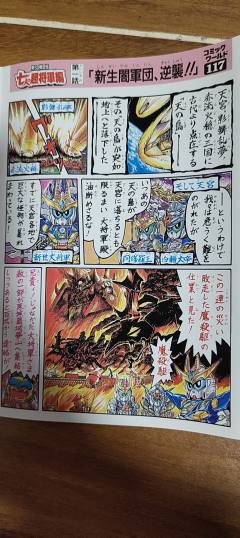 七人の超将軍編
第二話
「新生闇軍団、逆襲!!」
コミックワールド
117
天宮、影舞乱夢、
赤流火穏の三国に
古代より点在する
"天の島"
その"天の島"が突如
地上へと落下した
影舞乱夢
赤流火穏
そして天宮
というわけで
我々は危うく難を
のがれたが
いつあの
天の島が
天宮に落ちるとも
限るまい大将軍殿
油断めさるな!
白龍大帝
新世大将軍
すでに天宮各地で
巨大な妖怪が暴れ
まわっている
この一連の災い
敗走した魔殺駆の
仕業と見た!
魔殺駆